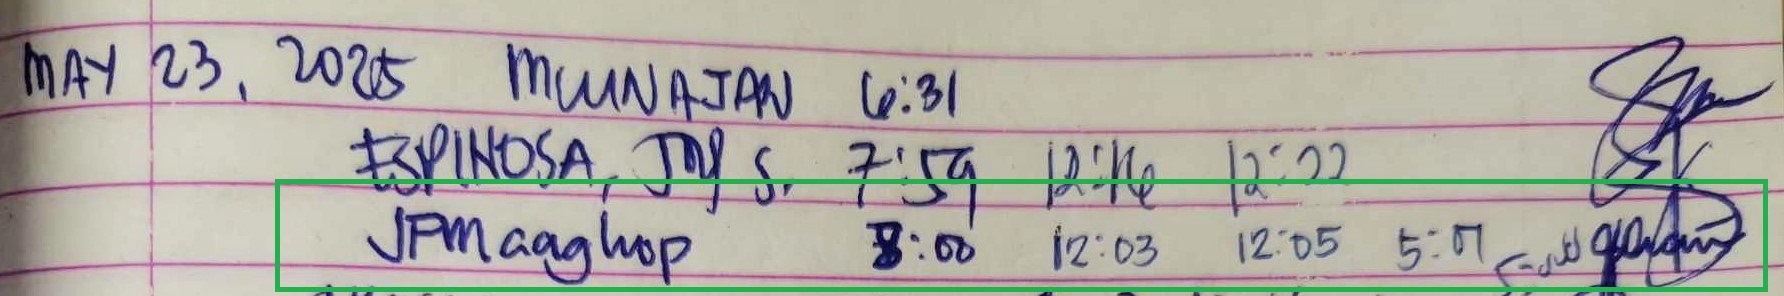 MAY 23, 2025 MUUNAJAN 6:31
ESPINOSA, JAY S. 7:59 12:16 12:22
JPMaaghop 8:00 12:03 12:05 5:01